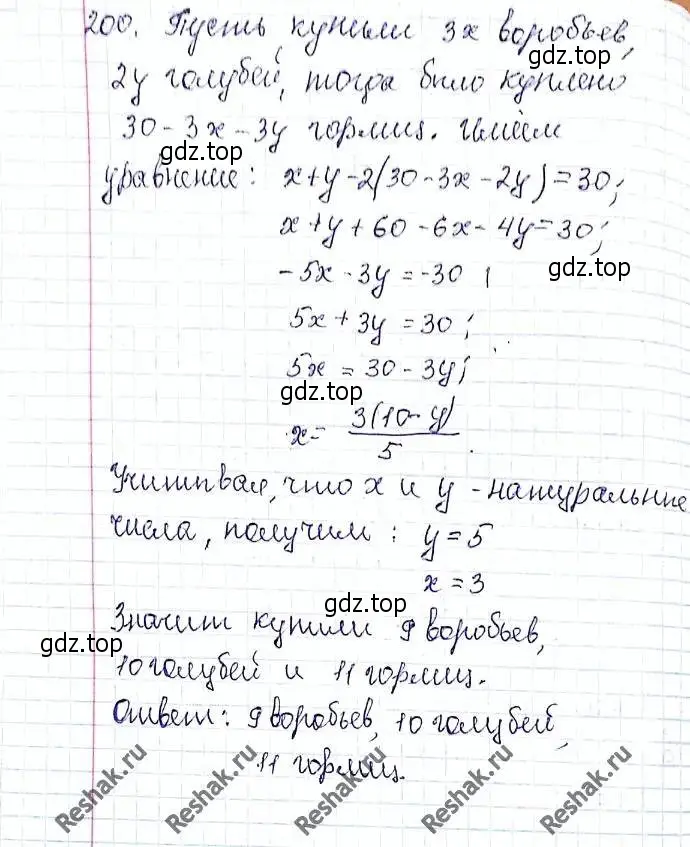 200. Пусть купили 3x воробьев,
2y голубей, тогда было куплено
30 - 3x - 3y горлиц. Имеем
gdz.top
уравнение: x + y - 2(30 - 3x - 2y) = 30;
gdz.top
x + y + 60 - 6x - 4y = 30;
gdz.top
-5x - 3y = -30;
5x + 3y = 30;
5x = 30 - 3y;
gdz.top
x = 3(10 - y)/5.
Учитывая, что x и y - натуральные
числа, получим: y = 5
gdz.top
x = 3
gdz.top
Значит купили 9 воробьев,
gdz.top
10 голубей и 11 горлиц.
Ответ: 9 воробьев, 10 голубей,
11 горлиц.
Reshak.ru
Reshak.ru
Reshak.ru
Reshak.ru
Reshak.ru